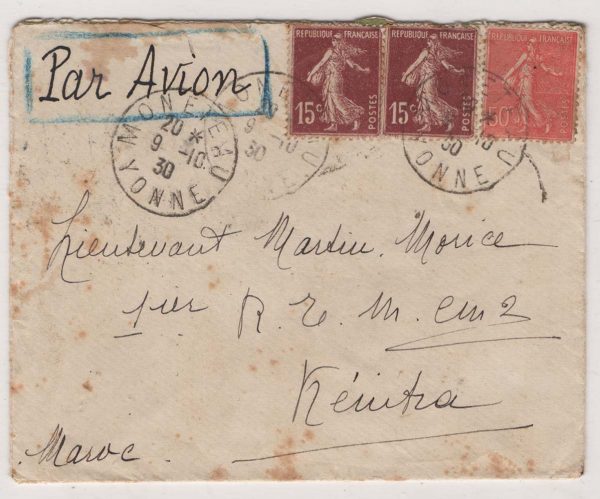 Par Avion
REPUBLIQUE FRANÇAISE
15c
POSTES
REPUBLIQUE FRANÇAISE
15c
POSTES
REPUBLIQUE FRANÇAISE
50c
POSTES
MONETEAU
20 *
9 -10
30
YONNE
9 -10
30
30
YONNE
Lieutenant Martin. Morice
1er R. E. M. Cm2
Kénitra
Maroc